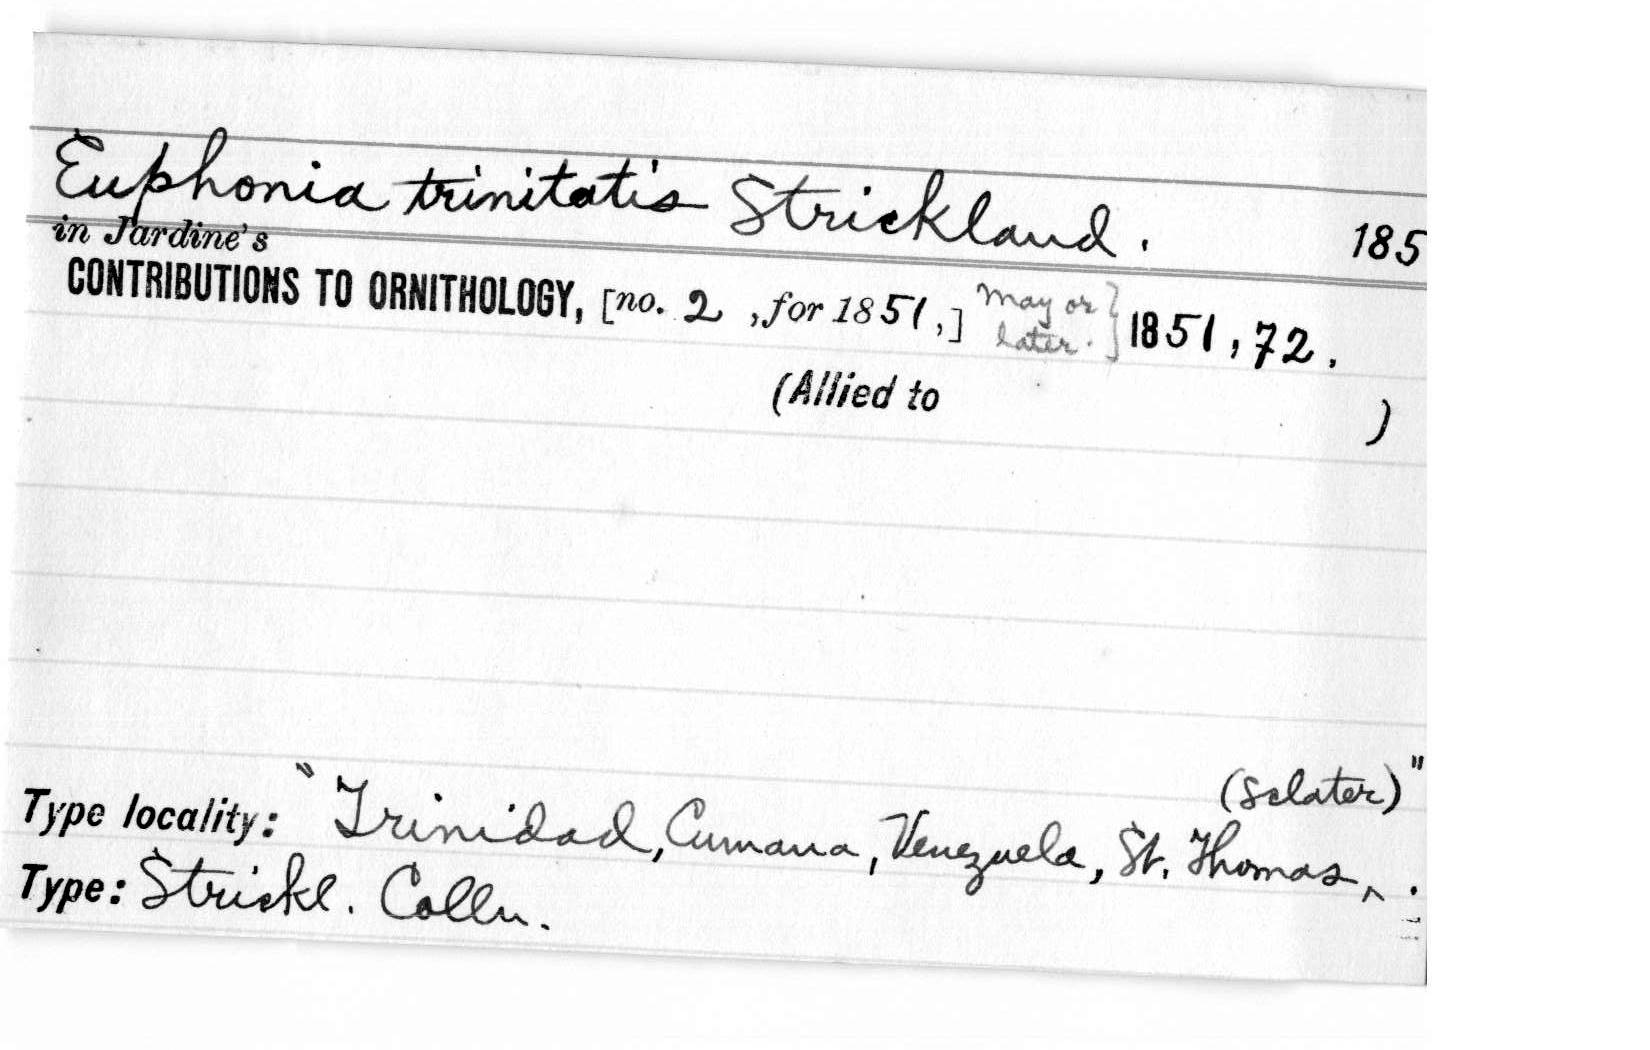 Euphonia trinitatis Strickland. 185
in Jardine's
CONTRIBUTIONS TO ORNITHOLOGY, [no. 2 , for 1851,] May or later. } 1851, 72.
(Allied to )
(Sclater)"
Type locality: "Trinidad, Cumana, Venezuela, St. Thomas, ^ .
Type: Strickl. Colln.